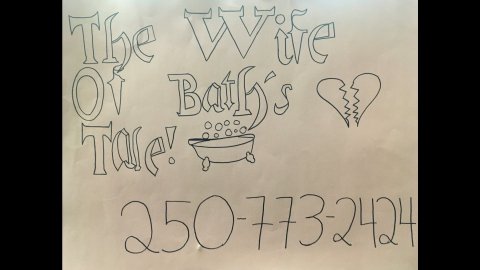 The Wife
Of Bath's
Tale!
250-773-2424